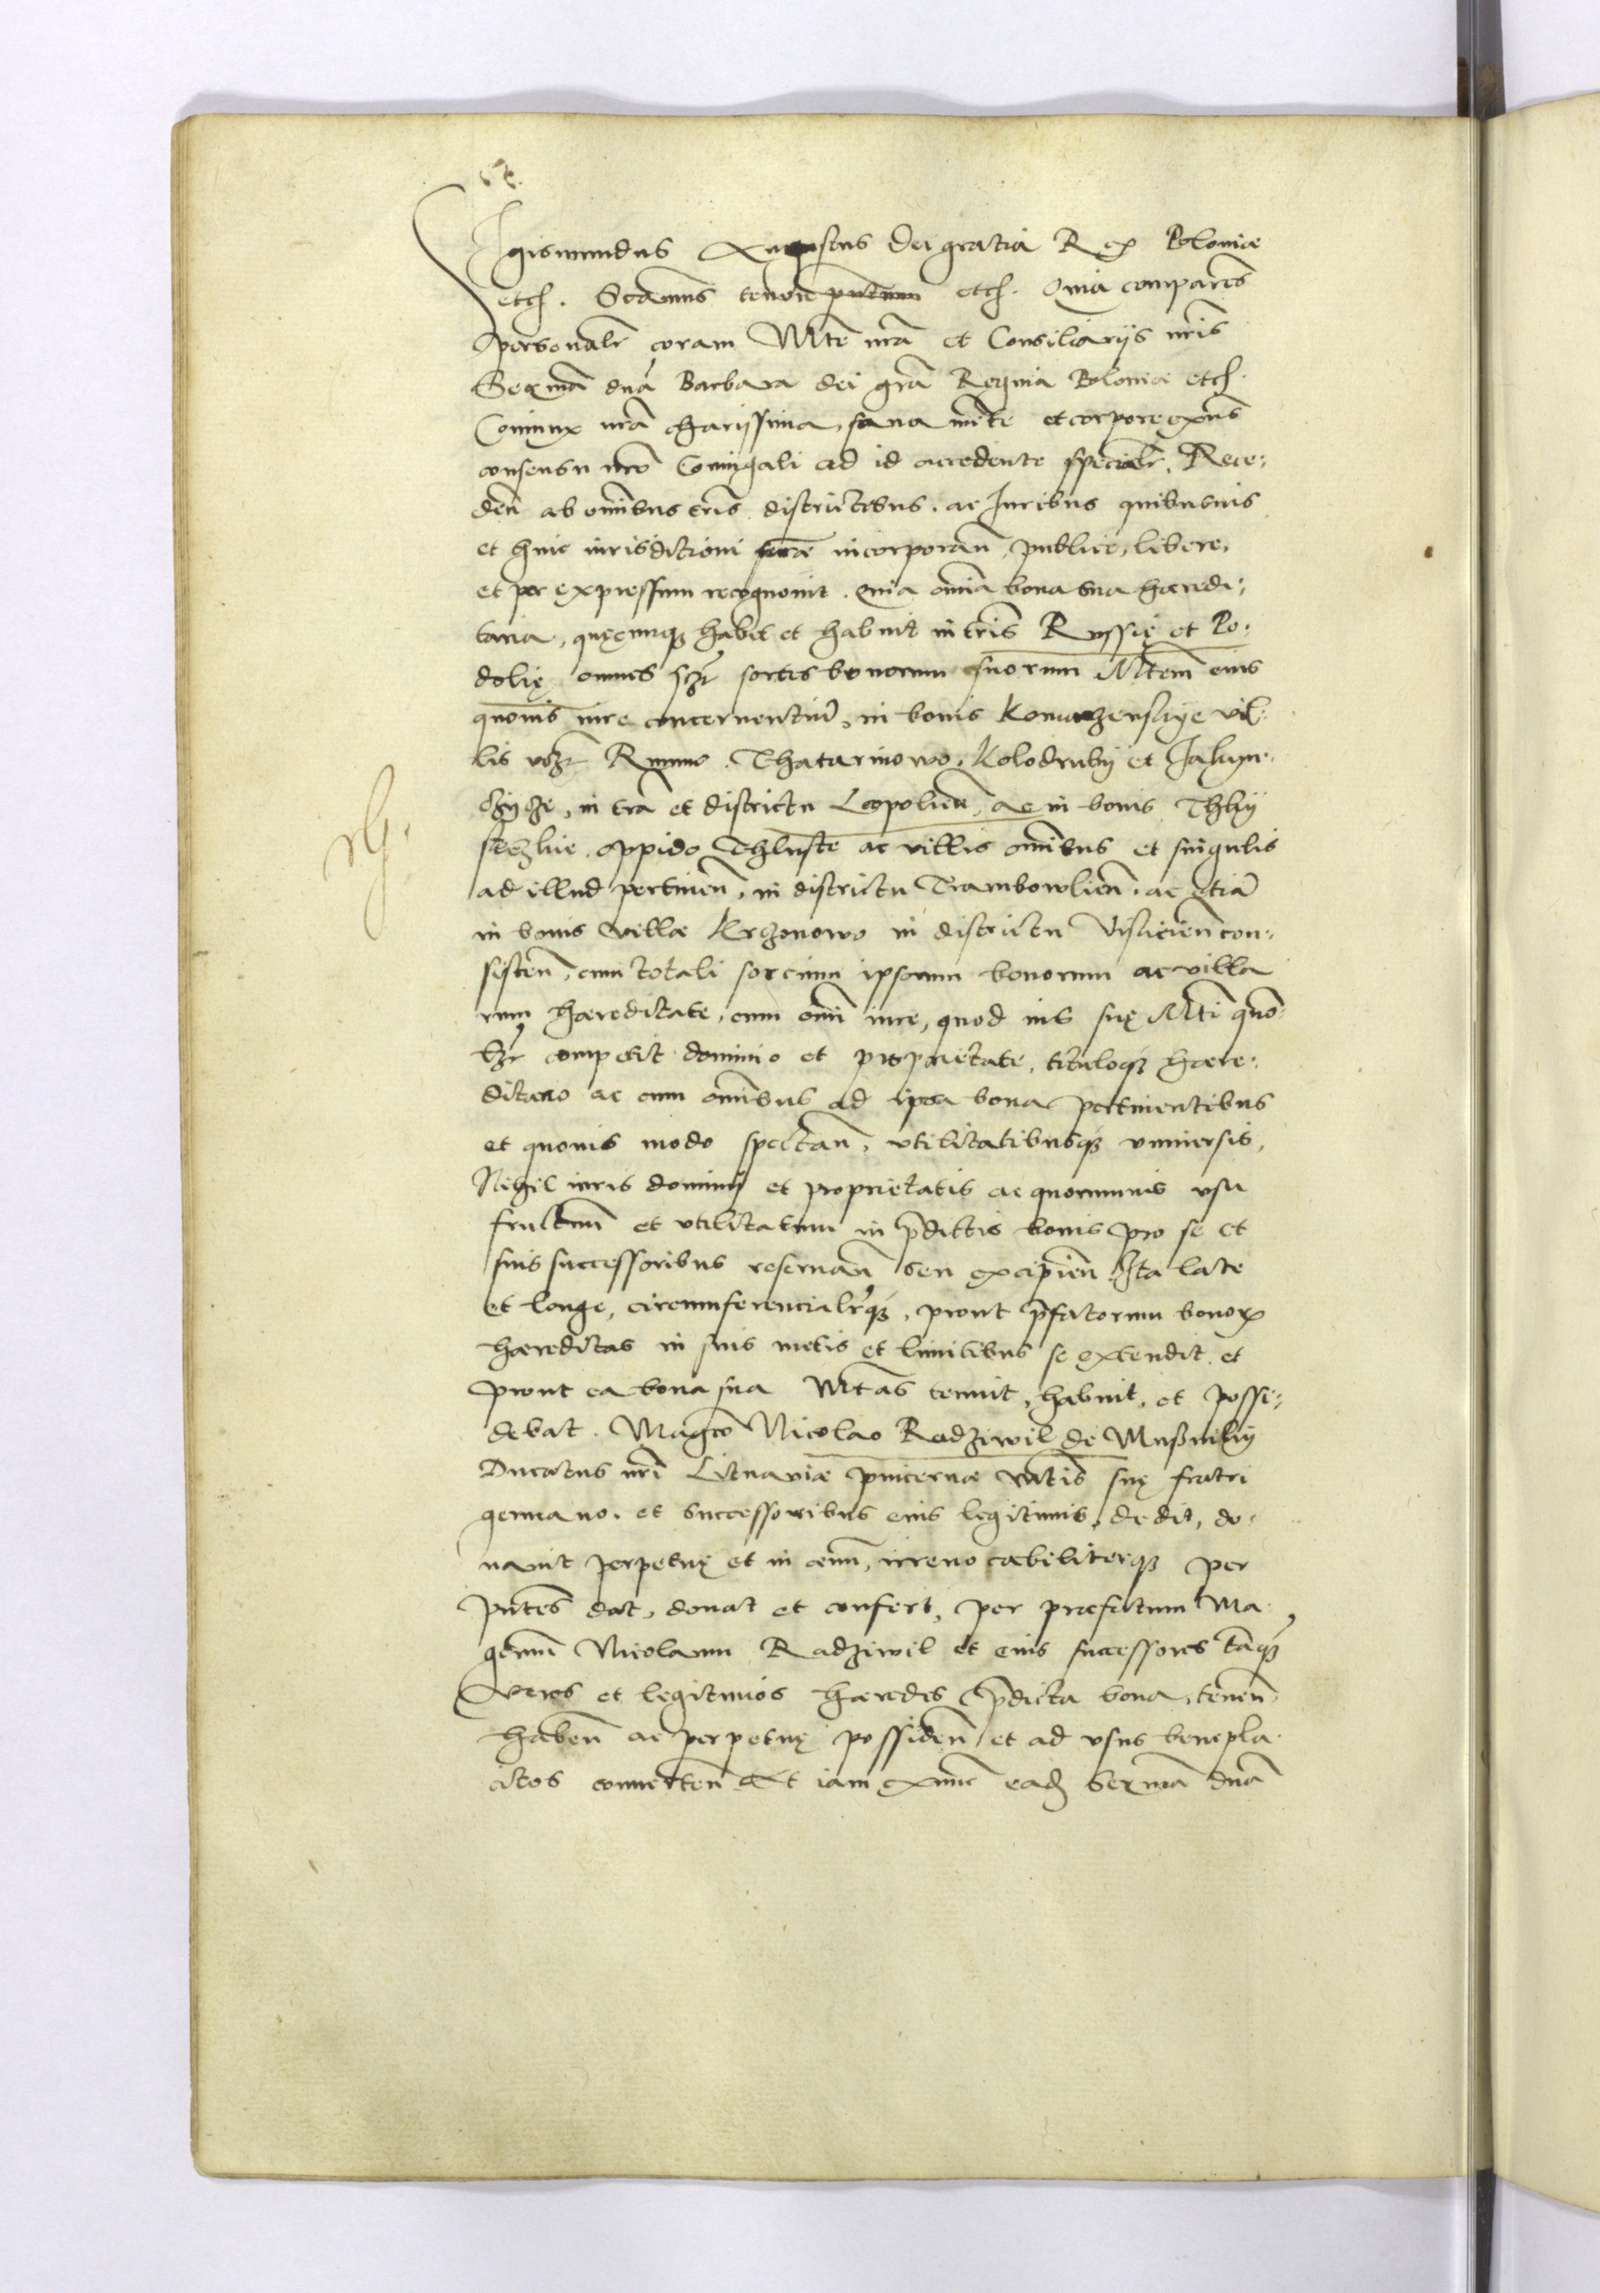 Sigismundus Augustus dei gratia Rex Poloniæ
etc. Scimus tenore pñtium etc. Quia comparẽs
personalr̃ coram Mte nrã et Consiliarijs nrĩs
Serma dña Barbara dei grã Regina Poloniæ etc.
Coniunx nrã charissima, sana mẽte et corpore exñs
consensu nrõ Coniugali ad id accedente specialr̃, Rece⸗
deñ ab omĩbus trĩs districtibus, ac Iuribus quibusuis
et huic iurisdictioni se incorporañ, publice, libere,
et per expressum recognouit. Quia omĩa bona sua hæredi⸗
taria, quęcunq habet et habuit in trĩs Russię et Po⸗
dolię omnes scz sortes bonorum suorum Mtem eius
quouis iure concernentiũ, in bonis Komarzenskye vil⸗
lis vcz Rumno, Thatarinowo, Kolodruby et Jakym⸗
czycze, in trã et districtu Leopolieñ, ac in bonis Thluy
steczkie oppido Thluste ac villis omĩbus et singulis
ad illud pertineñ, in districtu Trambowlieñ, ac etiã
in bonis villæ Krczonowo in districtu Vislicieñ con⸗
sisteñ, cum totali sortium ipsorum bonorum ac villa
rum hæreditate, cum omĩ iure, quod ius suę Mti quo⸗
lzr competit dominio et proprietate, tituloq hære⸗
ditario ac cum omĩbus ad ipsa bona pertinentibus
et quouis modo spectañ, vtilitatibusq vniuersis,
Nihil iuris dominij et proprietatis ac quorumuis vsu
fructuum et vtilitatum in p̃dictis bonis pro se et
suis successoribus reseruañ seu excipieñ Ita late
et longe, circumferencialr̃q, prout p̃fatorum bonorꝝ
hæreditas in suis metis et limitibus se extendit et
prout ea bona sua Mtas tenuit, habuit, et posse⸗
debat. Magco Nicolao Radziwil de Mussniky
Ducatus nrĩ Lituaniæ pincernæ Mtis suę fratri
germano, et successoribus eius legitimis, dedit, do⸗
nauit perpetuę et in æuum, irreuocabiliterq per
pñtes dat, donat et confert, per præfatum Ma⸗
gcum Nicolaum Radziwil et eius successores tãq
veros et legitimos hæredes p̃dicta bona, teneñ
habeñ ac perpetuę possideñ et ad vsus benepla⸗
citos conuerteñ Et iam exnunc eadẽ Serma dña